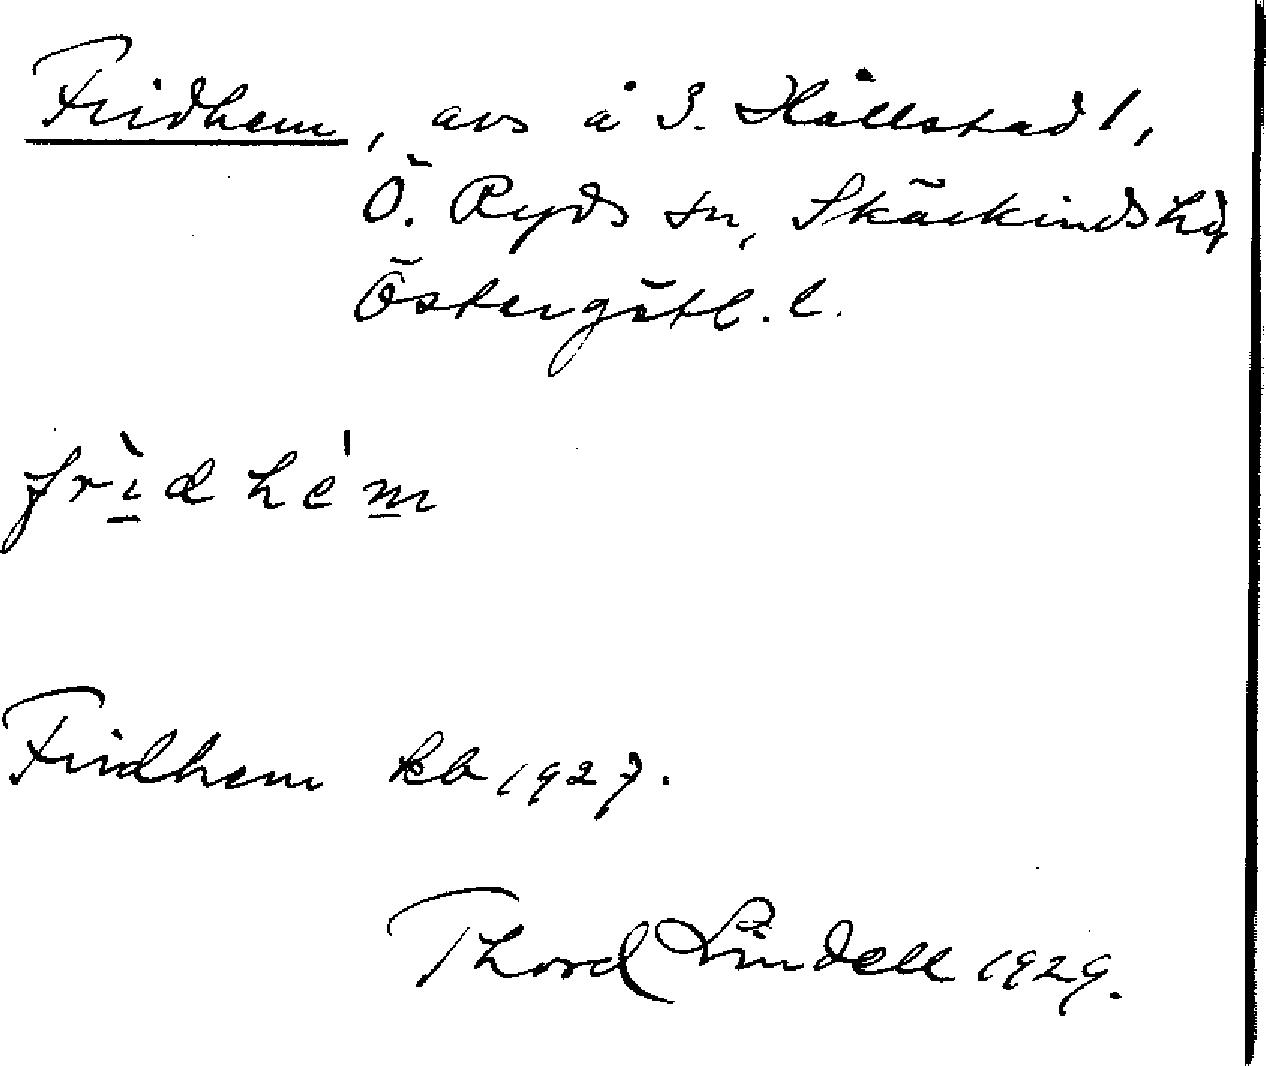 Fridhem, avs å S. Hållstad 1,
Ö. Ryds sn, Skärkinds hd,
Östergötl. l.
frìdhém
Fridhem kb 1927.
Thord Lindell 1929.